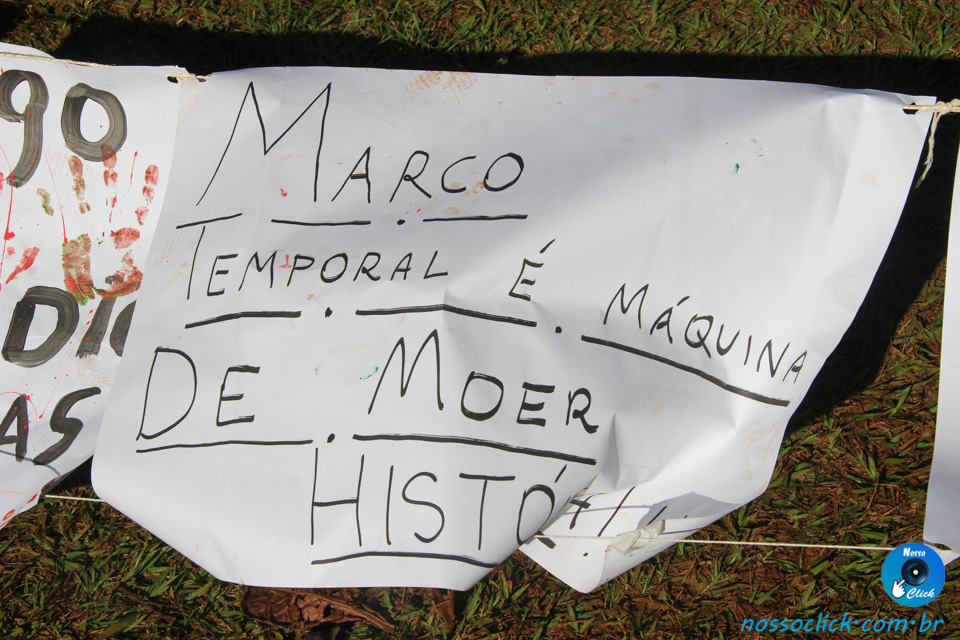 90
DIO
AS
MARCO
TEMPORAL É MÁQUINA
DE MOER
HISTÓ
Nosso
Click
nossoclick.com.br